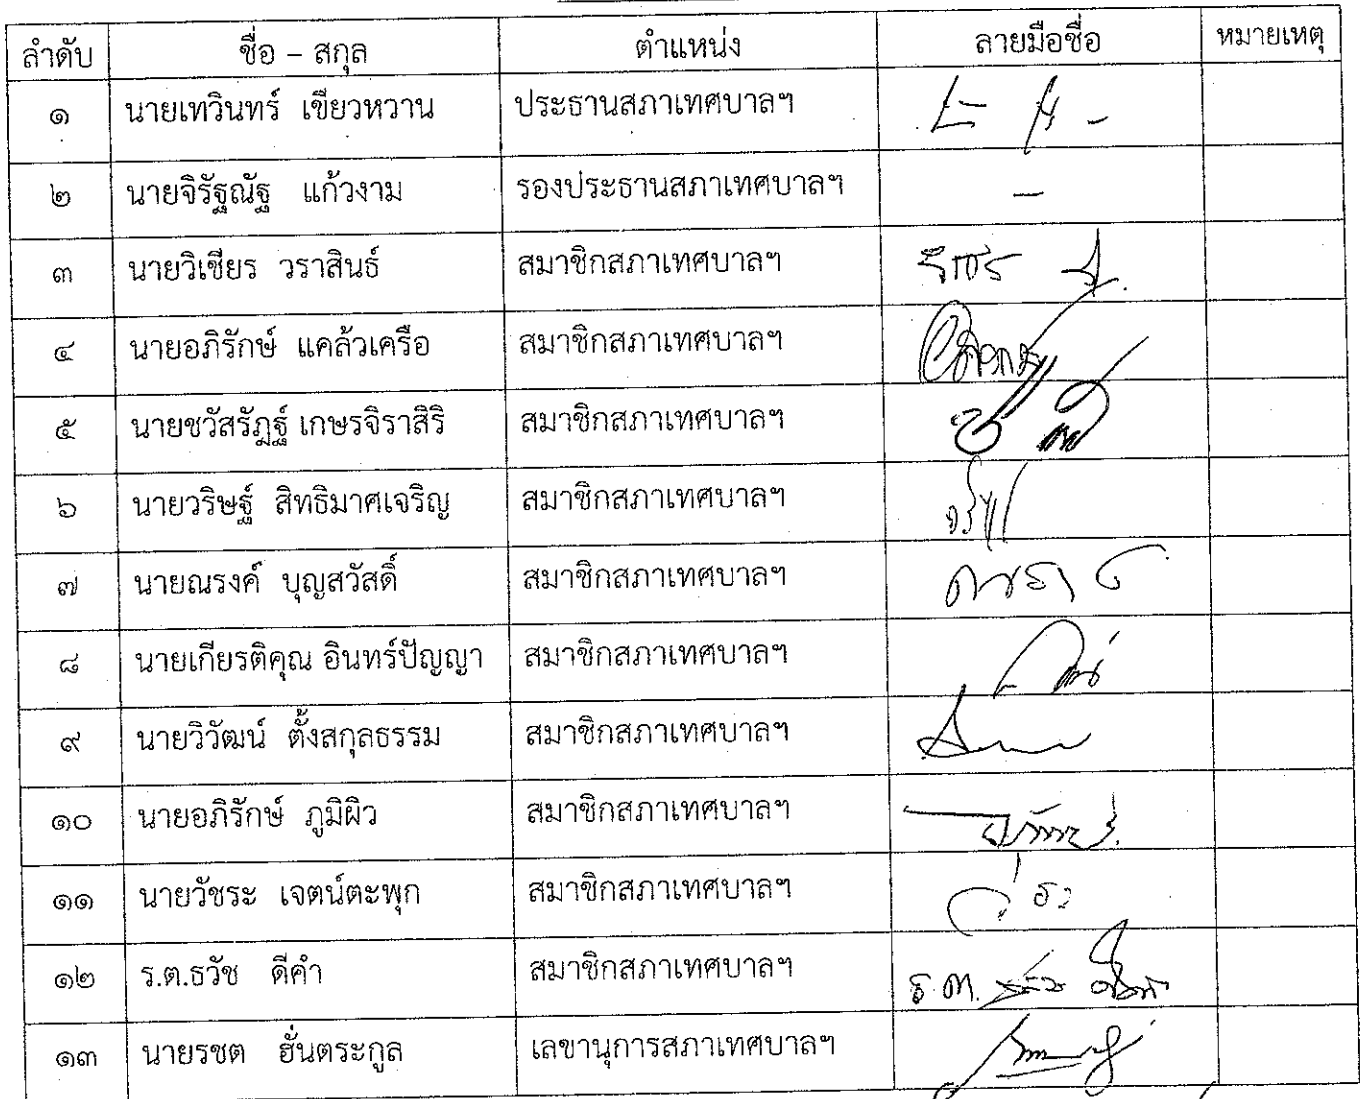 ลำดับ ชื่อ – สกุล ตำแหน่ง ลายมือชื่อ หมายเหตุ
๑ นายเทวินทร์ เขียวหวาน ประธานสภาเทศบาลฯ
๒ นายจิรัฐณัฐ แก้วงาม รองประธานสภาเทศบาลฯ –
๓ นายวิเชียร วราสินธ์ สมาชิกสภาเทศบาลฯ
๔ นายอภิรักษ์ แคล้วเครือ สมาชิกสภาเทศบาลฯ
๕ นายชวัสรัฎฐ์ เกษรจิราสิริ สมาชิกสภาเทศบาลฯ
๖ นายวริษฐ์ สิทธิมาศเจริญ สมาชิกสภาเทศบาลฯ
๗ นายณรงค์ บุญสวัสดิ์ สมาชิกสภาเทศบาลฯ
๘ นายเกียรติคุณ อินทร์ปัญญา สมาชิกสภาเทศบาลฯ
๙ นายวิวัฒน์ ตั้งสกุลธรรม สมาชิกสภาเทศบาลฯ
๑๐ นายอภิรักษ์ ภูมิผิว สมาชิกสภาเทศบาลฯ
๑๑ นายวัชระ เจตน์ตะพุก สมาชิกสภาเทศบาลฯ
๑๒ ร.ต.ธวัช ดีคำ สมาชิกสภาเทศบาลฯ ร.ต.
๑๓ นายรชต ฮั่นตระกูล เลขานุการสภาเทศบาลฯ